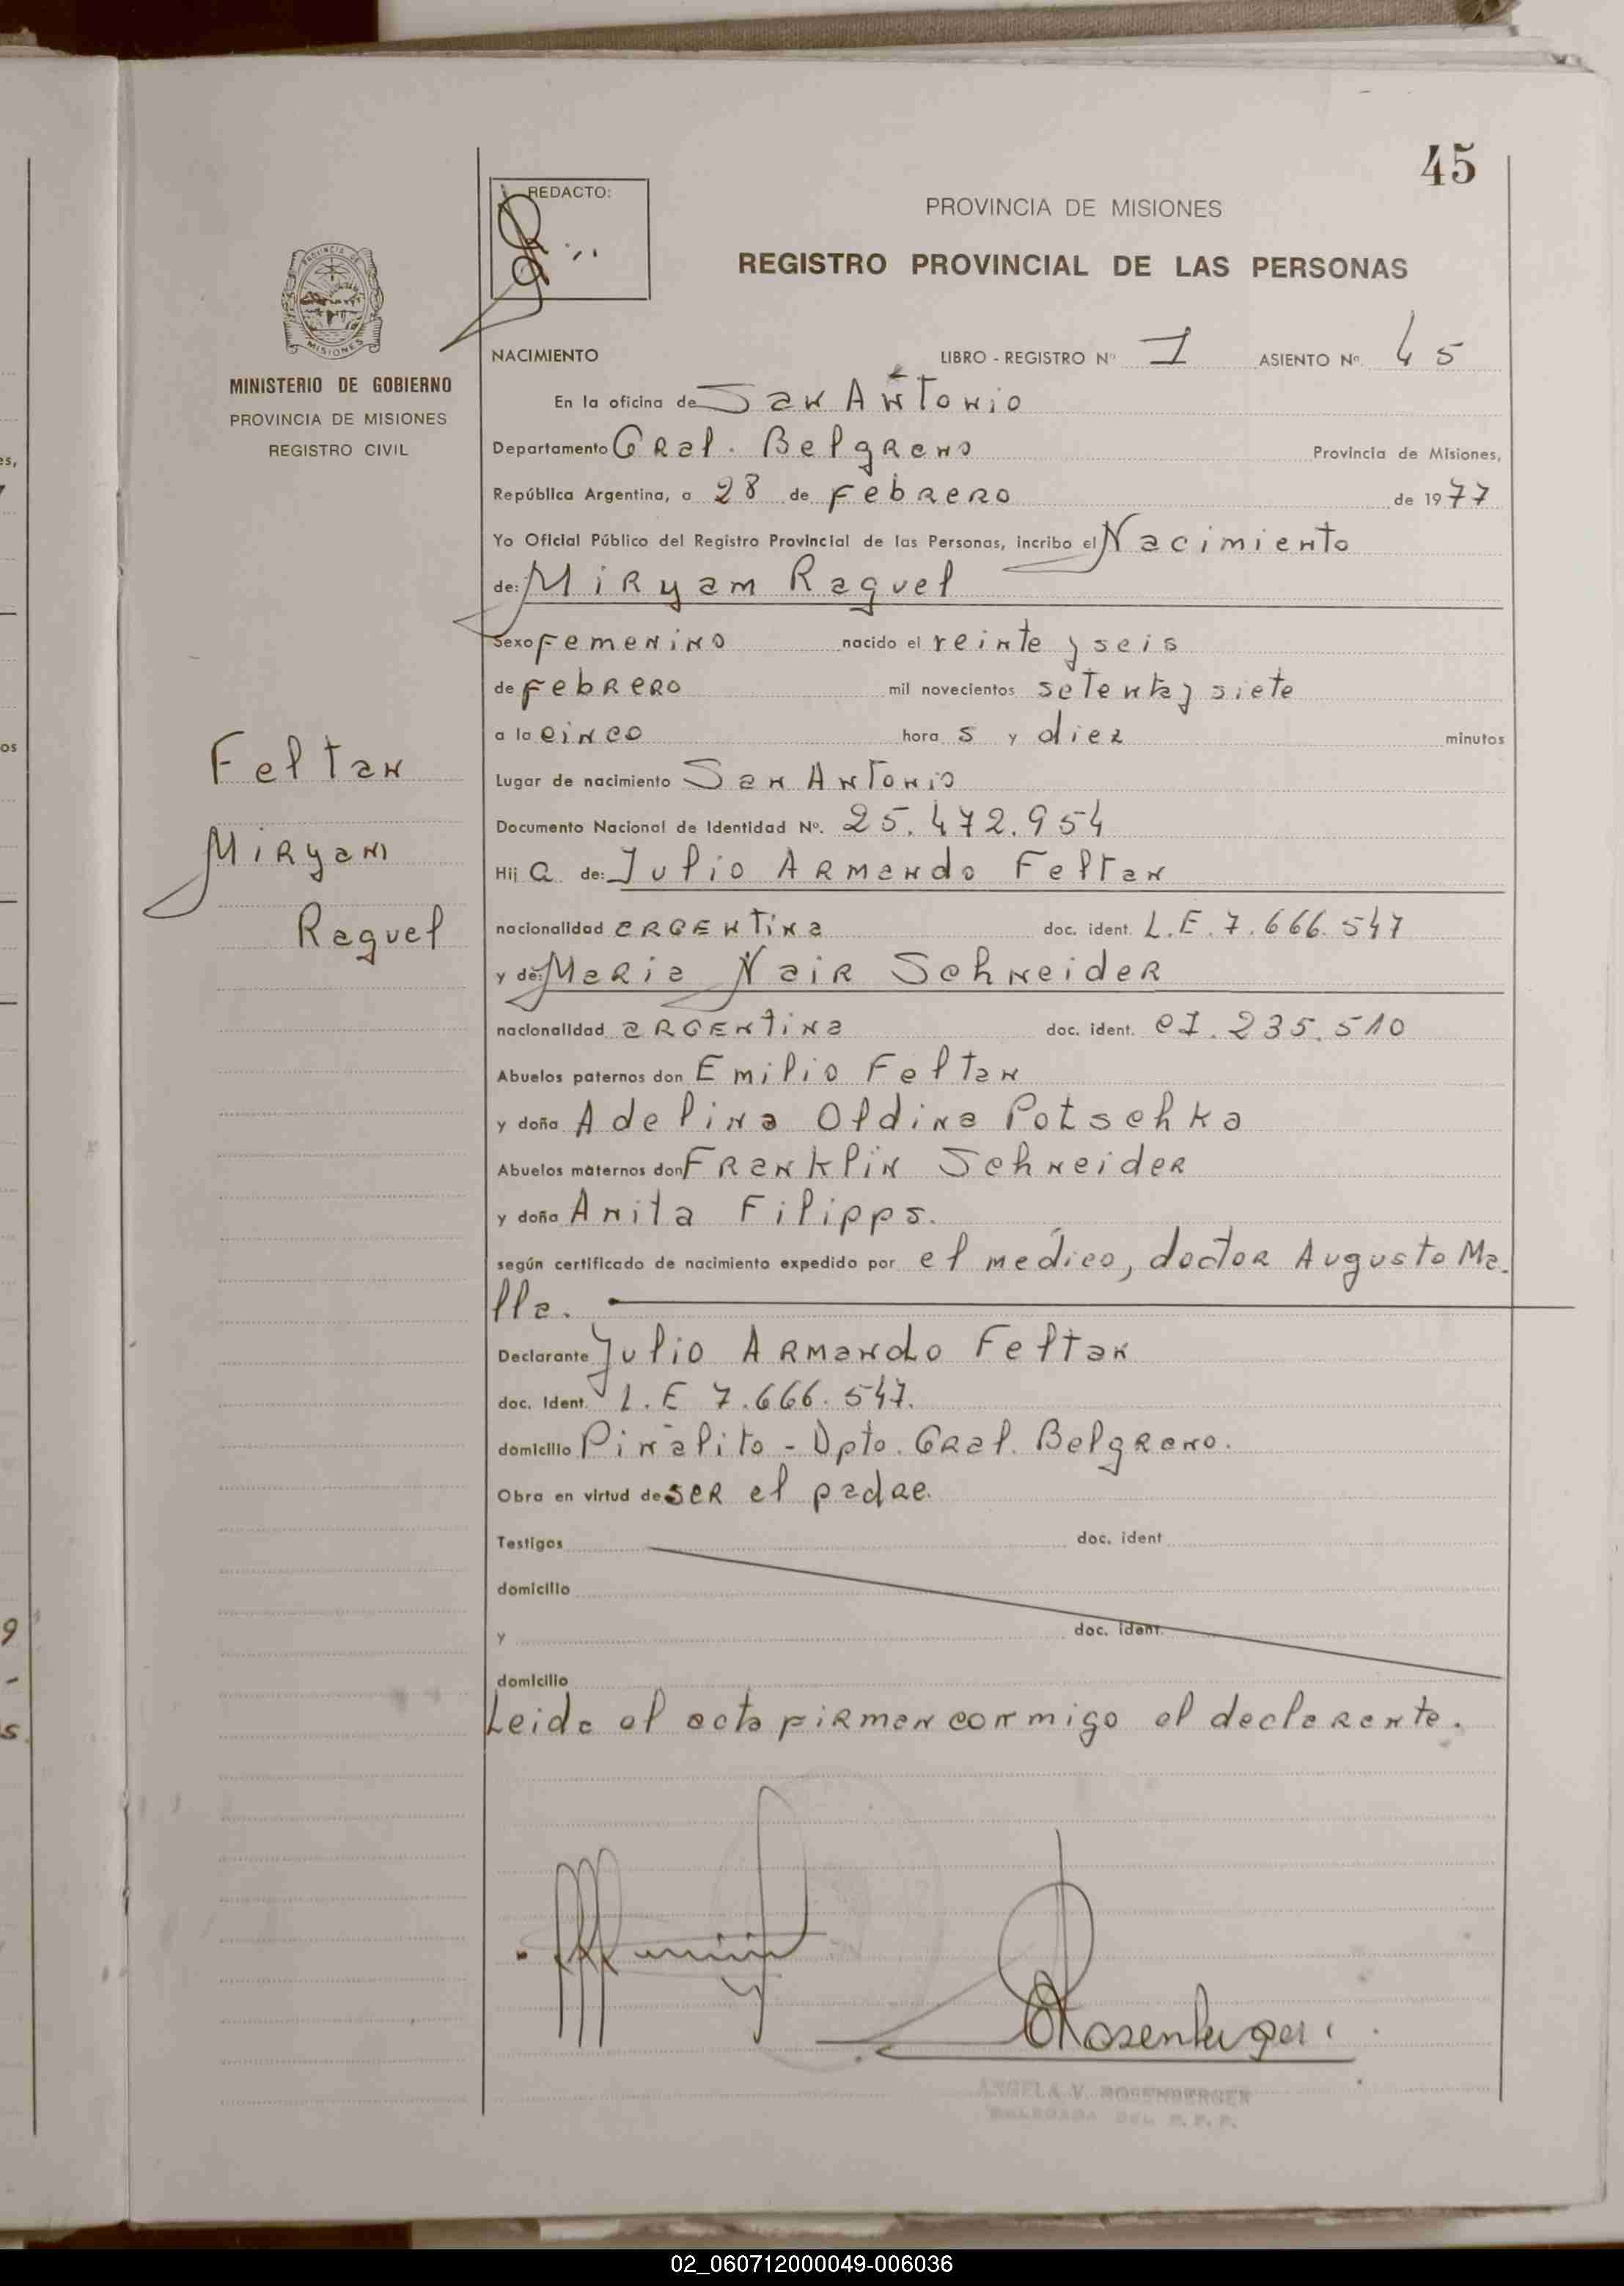 45
REDACTO:
PROVINCIA DE MISIONES
REGISTRO PROVINCIAL DE LAS PERSONAS
PROVINCIA DE
MISIONES
MINISTERIO DE GOBIERNO
PROVINCIA DE MISIONES
REGISTRO CIVIL
NACIMIENTO LIBRO - REGISTRO Nº 1 ASIENTO Nº. 45
En la oficina de San Antonio
Departamento Gral. Belgrano Provincia de Misiones,
República Argentina, a 28 de Febrero de 1977
Yo Oficial Público del Registro Provincial de las Personas, incribo el Nacimiento
de: Miryam Raquel
Sexo Femenino nacido el veinte y seis
de Febrero mil novecientos setenta y siete
a la cinco hora s y diez minutos
Feltan
Lugar de nacimiento San Antonio
Documento Nacional de Identidad Nº. 25.472.954
Miryam
Hij a de: Julio Armando Feltan
Raquel
nacionalidad argentina doc. ident. L.E. 7.666.547
y de: Maria Nair Schneider
nacionalidad argentina doc. ident. CI. 235.510
Abuelos paternos don Emilio Feltan
y doña Adelina Oldina Potschka
Abuelos maternos don Franklin Schneider
y doña Anita Filipps.
según certificado de nacimiento expedido por el médico, doctor Augusto Ma-
lla.
Declarante Julio Armando Feltan
doc. Ident. L.E 7.666.547.
domicilio Piñalito - Dpto. Gral. Belgrano.
Obra en virtud de ser el padre.
Testigos doc. ident
domicilio
y doc. ident.
domicilio
Leida el acta firman conmigo el declarante.
Rosenberger
ANGELA V. ROSENBERGER
DELEGADA DEL R. P. P.
02_060712000049-006036